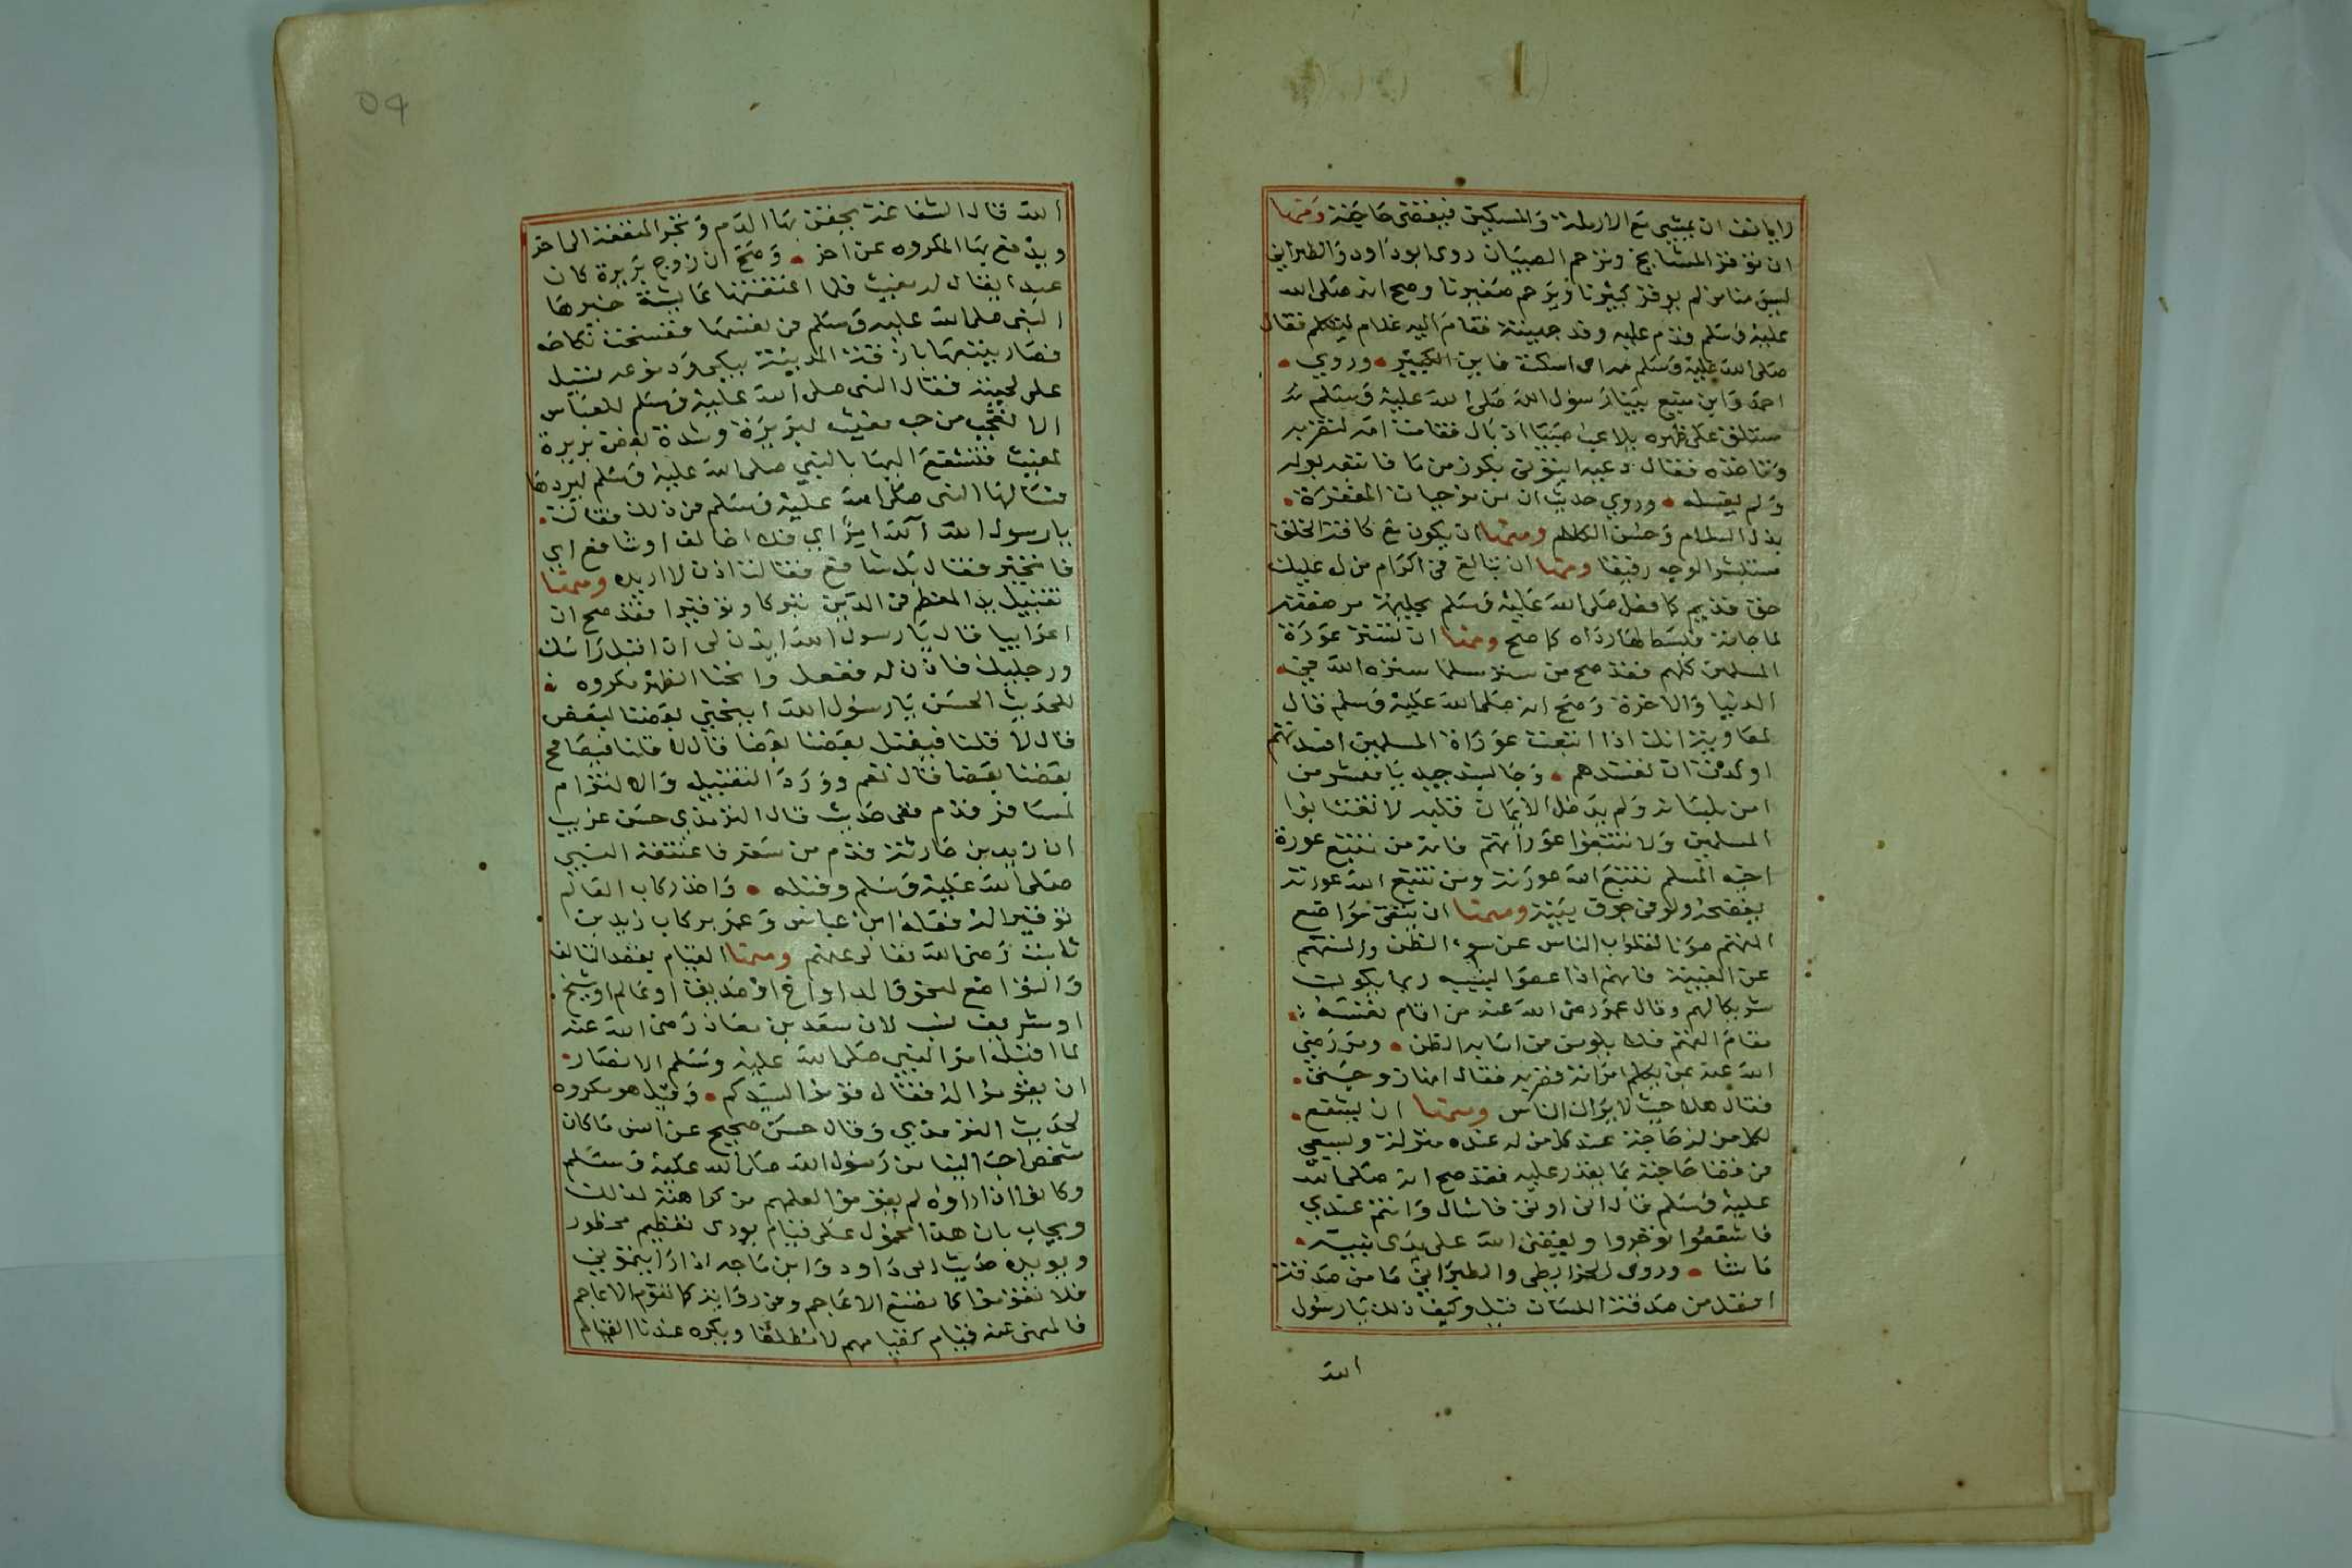 ان يمشي مع الارملة والمسكين فيقضي حاجته ومنها
ان يوقر المشايخ ويرحم الصبيان روى ابو داود والطبراني
ليس منا من لم يوقر كبيرنا ويرحم صغيرنا وصح انه صلى الله
عليه وسلم قدم عليه وفد جهينة فقام اليه غلام ليتكلم فقال
صلى الله عليه وسلم اسكت فاين الكبير وروي
احمد وابن منيع بينا رسول الله صلى الله عليه وسلم
مستلق على ظهره يلاعب صبيا اذ بال فقامت امه لتضربه
وتاخذه فقال دعيه ايتوني بكوز من ما فاتبعه بوله
ولم يغسله وروي حديث ان من موجبات المغفرة
بذل السلام وحسن الكلام ومنها ان يكون مع كافة الخلق
مستبشر الوجه رفيقا ومنها ان يبالغ في اكرام من له عليك
حق قديم كما فعل صلى الله عليه وسلم بحليمة مرضعته
لما جاءته فبسط لها رداه كما صح ومنها ان تستر عورة
المسلمين كلهم فقد صح من ستر مسلما ستره الله في
الدنيا والاخرة وصح انه صلى الله عليه وسلم قال
لمعاوية انك اذا اتبعت عوراة المسلمين افسدتهم
او كدت ان تفسدهم وجا بسند جيد يا معشر من
امن بلسانه ولم يدخل الايمان قلبه لا تغتابوا
المسلمين ولا تتبعوا عوراتهم فانه من تتبع عورة
اخيه المسلم تتبع الله عورته ومن تتبع الله عورته
يفضحه ولو في جوف بيته ومنها ان يتقي مواضع
التهم صونا لقلوب الناس عن سوء الظن والسنتهم
عن الغيبة فانهم اذا عصوا ربما يكون
شريكا لهم وقال عمر رضي الله عنه من اقام نفسه
مقام التهم فلا يلومن من اساء به الظن ومر رضي
الله عنه بمن يكلم امراة فضربه فقال انها زوجتي
فقال هلا حيث لا يراك الناس ومنها ان يشفع
لكل من له حاجة عند كل من له عنده منزلة ويسعي
في قضا حاجته بما يقدر عليه فقد صح انه صلى الله
عليه وسلم قال اني اوتى فاسال وانتم عندي
فاشفعوا توجروا ويقضي الله على يدي نبيه
ما شا وروى الخرايطي والطبراني ما من صدقة
افضل من صدقة اللسان قيل وكيف ذلك يا رسول
الله
الله قال الشفاعة يحقن بها الدم وتجر المنفعة الى اخر
ويدفع بها المكروه عن اخر وصح ان زوج بريرة كان
عبدا يقال له مغيث فلما اعتقتها عايشة خيرها
النبي صلى الله عليه وسلم في نفسها ففسخت نكاحه
فصار يتبعها بازقة المدينة يبكي ودموعه تسيل
على لحيته فقال النبي صلى الله عليه وسلم للعباس
الا تعجب من حب مغيث لبريرة وشدة بغض بريرة
لمغيث فتشفع اليها بالنبي صلى الله عليه وسلم ليردها
فسالها النبي صلى الله عليه وسلم في ذلك فقالت
يا رسول الله اي فلا اخالف او شافع اي
فاتخير فقال بل شافع فقالت اذن لا اريده ومنها
تقبيل يد المعظم في الدين تبركا وتوقيرا فقد صح ان
اعرابيا قال يا رسول الله ايذن لي ان اقبل راسك
ورجليك فاذن له ففعل وانحنا الظهر مكروه
للحديث الحسن يا رسول الله اينحني بعضنا لبعض
قال لا قلنا فيقبل بعضنا بعضا قال لا قلنا فيصافح
بعضنا بعضا قال نعم وورد التقبيل والالتزام
لمسافر قدم ففي حديث قال الترمذي حسن غريب
ان زيد بن حارثة قدم من سفر فاعتنقه النبي
صلى الله عليه وسلم وقبله واخذ ركاب العالم
توقيرا له فعله ابن عباس وعمر بركاب زيد بن
ثابت رضي الله تعالى عنهم ومنها القيام بقصد التالف
والتواضع لنحو والد او اخ او صديق او عالم او شيخ
او شريف نسب لان سعد بن معاذ رضي الله عنه
لما اقبل امر النبي صلى الله عليه وسلم الانصار
ان يقوموا له فقال قوموا لسيدكم وقيل هو مكروه
لحديث الترمذي وقال حسن صحيح عن انس ما كان
شخص احب الينا من رسول الله صلى الله عليه وسلم
وكانوا اذا راوه لم يقوموا لعلمهم من كراهته لذلك
ويجاب بان هذا محمول على قيام يودى تعظيم محظور
ويويده حديث ابي داود وابن ماجه اذا رايتموني
فلا تقوموا كما تصنع الاعاجم وفي رواية كما تقوم الاعاجم
فالمنهي عنه قيام كقيامهم لا مطلقا ويكره عندنا القيام